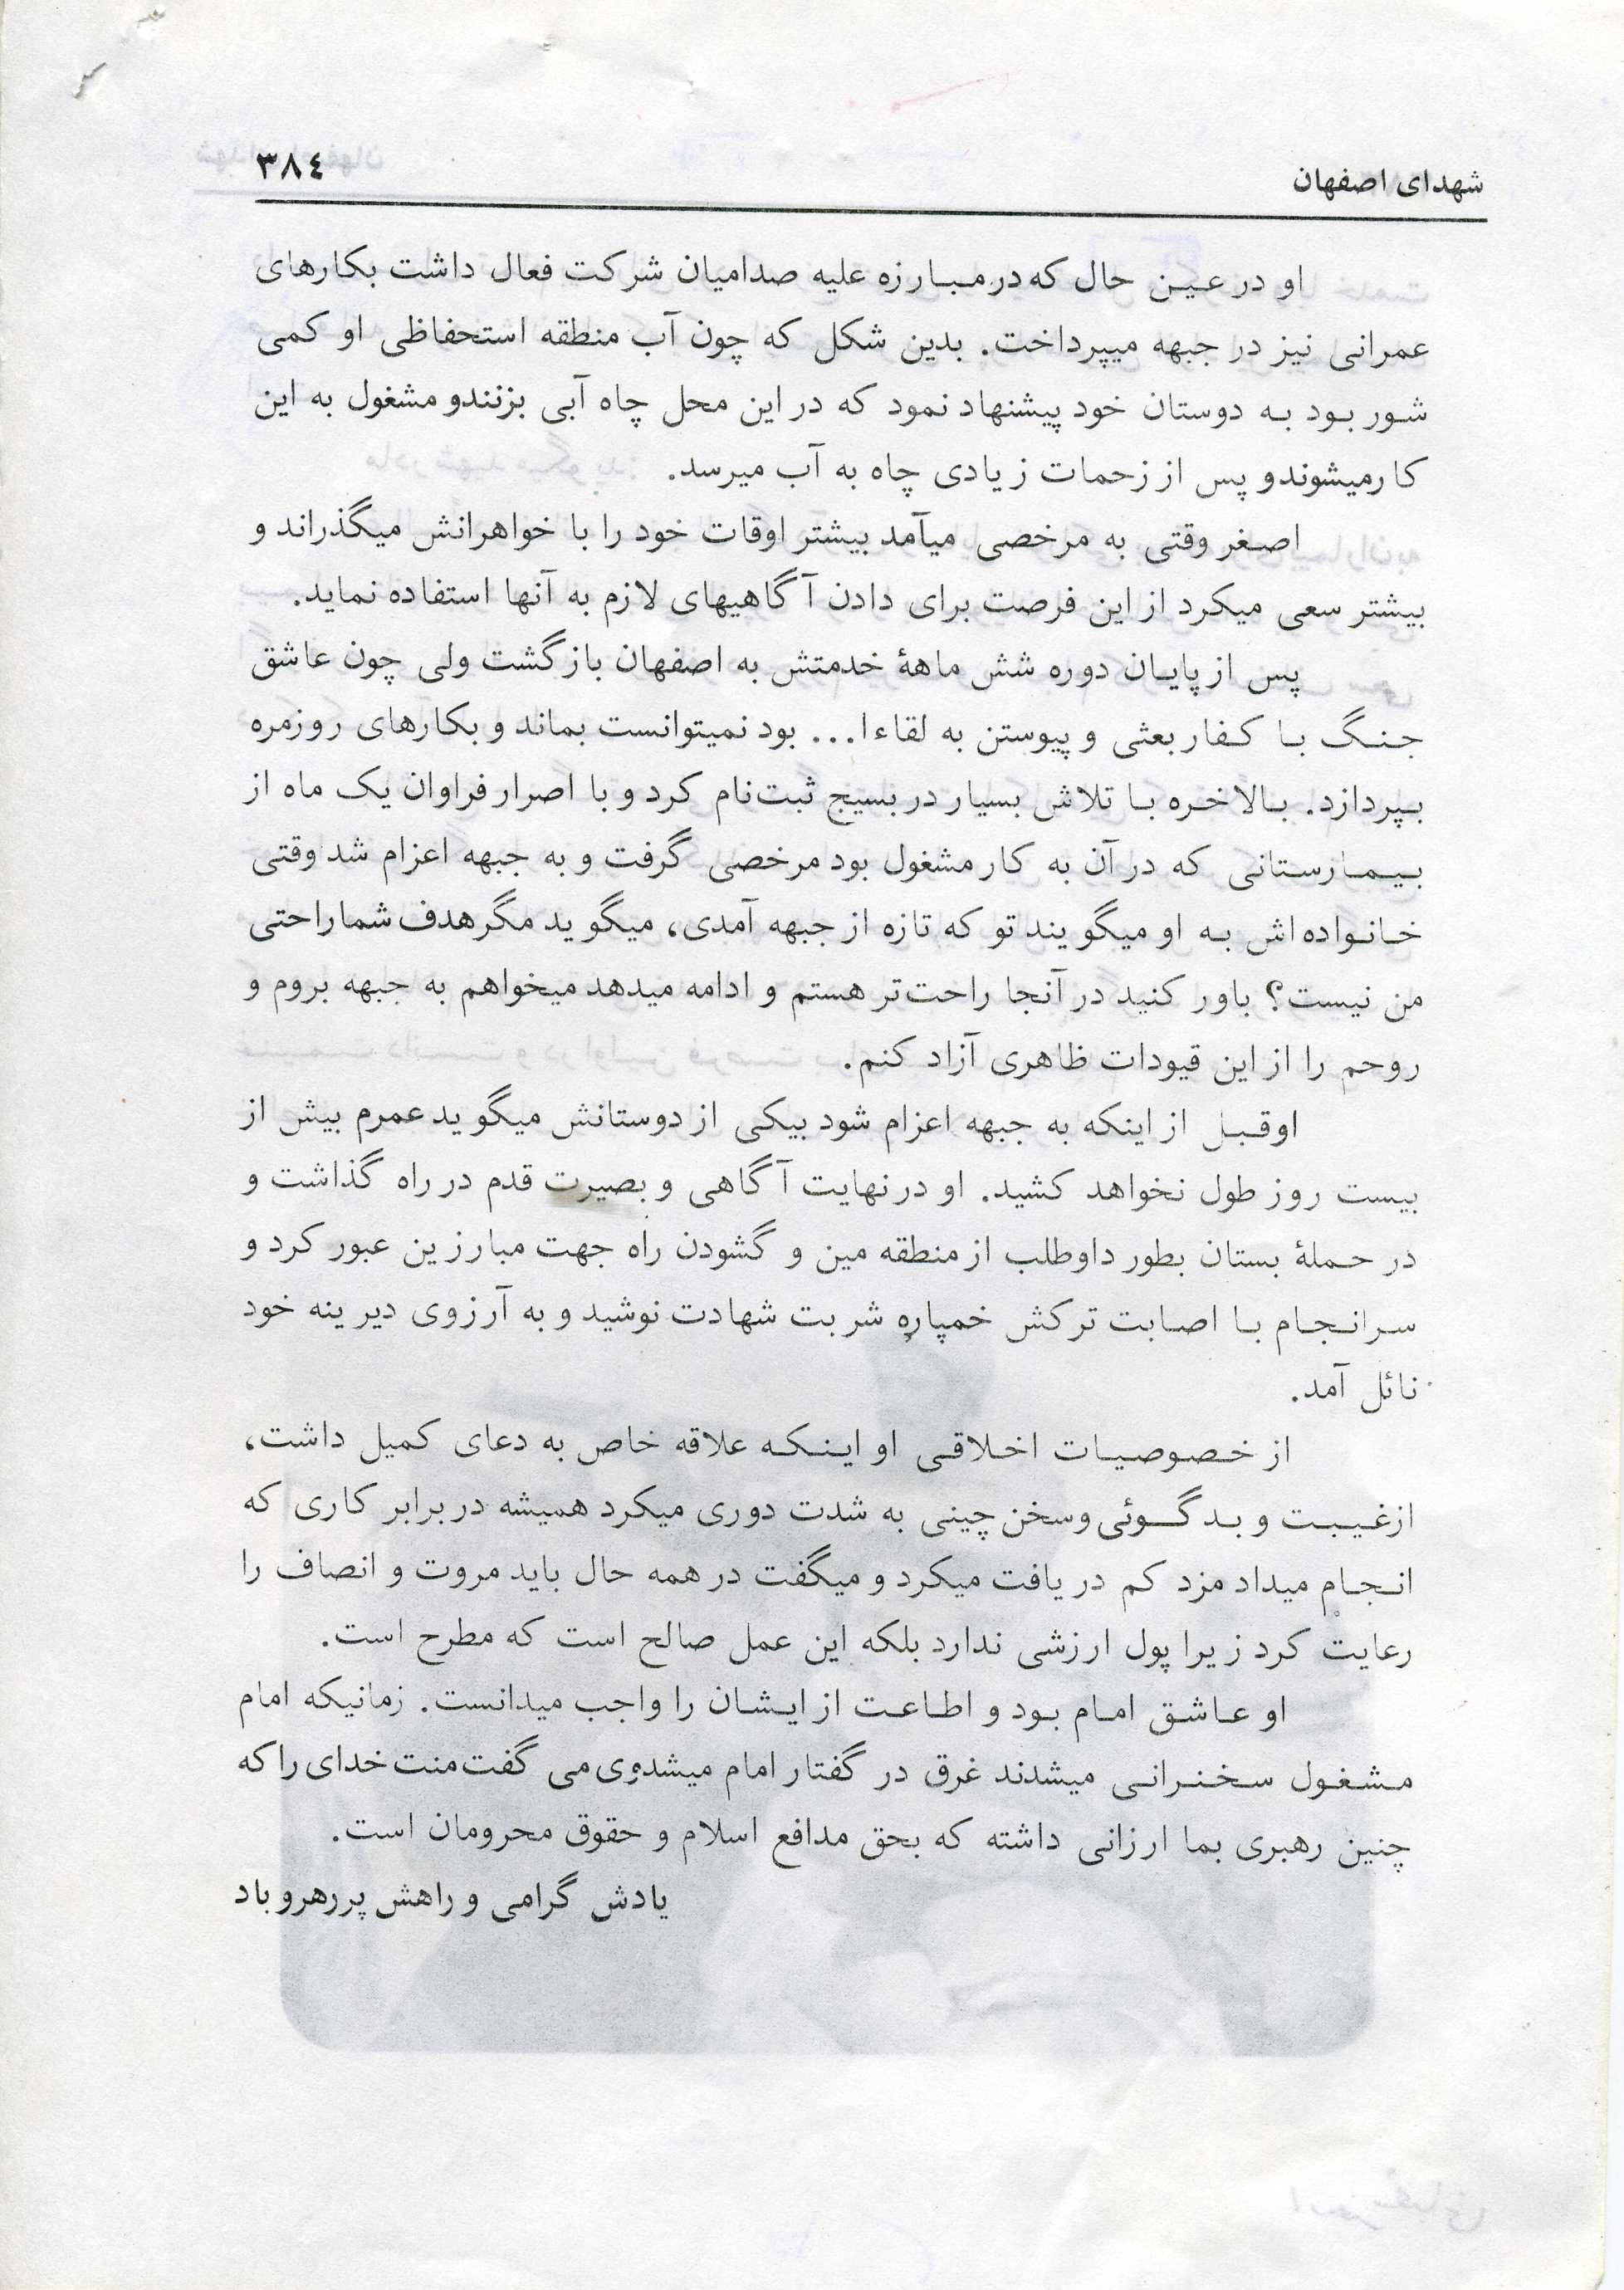 شهدای اصفهان
٣٨٤
او در عین حال که در مبارزه علیه صدامیان شرکت فعال داشت بکارهای
عمرانی نیز در جبهه میپرداخت. بدین شکل که چون آب منطقه استحفاظی او کمی
شور بود به دوستان خود پیشنهاد نمود که در این محل چاه آبی بزنندو مشغول به این
کارمیشوندو پس از زحمات زیادی چاه به آب میرسد.
اصغر وقتی به مرخصی میآمد بیشتر اوقات خود را با خواهرانش میگذراند و
بیشتر سعی میکرد از این فرصت برای دادن آگاهیهای لازم به آنها استفاده نماید.
پس از پایان دوره شش ماههٔ خدمتش به اصفهان بازگشت ولی چون عاشق
جنگ با کفار بعثی و پیوستن به لقاءا... بود نمیتوانست بماند و بکارهای روزمره
بپردازد. بالاخره با تلاش بسیار در بسیج ثبت‌نام کرد و با اصرار فراوان یک ماه از
بیمارستانی که در آن به کار مشغول بود مرخصی گرفت و به جبهه اعزام شد وقتی
خانواده‌اش به او میگویند تو که تازه از جبهه آمدی، میگوید مگر هدف شما راحتی
من نیست؟ باور کنید در آنجا راحت‌تر هستم و ادامه میدهد میخواهم به جبهه بروم و
روحم را از این قیودات ظاهری آزاد کنم.
او قبل از اینکه به جبهه اعزام شود بیکی از دوستانش میگوید عمرم بیش از
بیست روز طول نخواهد کشید. او در نهایت آگاهی و بصیرت قدم در راه گذاشت و
در حملهٔ بستان بطور داوطلب از منطقه مین و گشودن راه جهت مبارزین عبور کرد و
سرانجام با اصابت ترکش خمپاره شربت شهادت نوشید و به آرزوی دیرینه خود
نائل آمد.
از خصوصیات اخلاقی او اینکه علاقه خاص به دعای کمیل داشت،
ازغیبت و بدگوئی وسخن چینی به شدت دوری میکرد همیشه در برابر کاری که
انجام میداد مزد کم دریافت میکرد و میگفت در همه حال باید مروت و انصاف را
رعایت کرد زیرا پول ارزشی ندارد بلکه این عمل صالح است که مطرح است.
او عاشق امام بود و اطاعت از ایشان را واجب میدانست. زمانیکه امام
مشغول سخنرانی میشدند غرق در گفتار امام میشدوی می گفت منت خدای را که
چنین رهبری بما ارزانی داشته که بحق مدافع اسلام و حقوق محرومان است.
یادش گرامی و راهش پررهرو باد